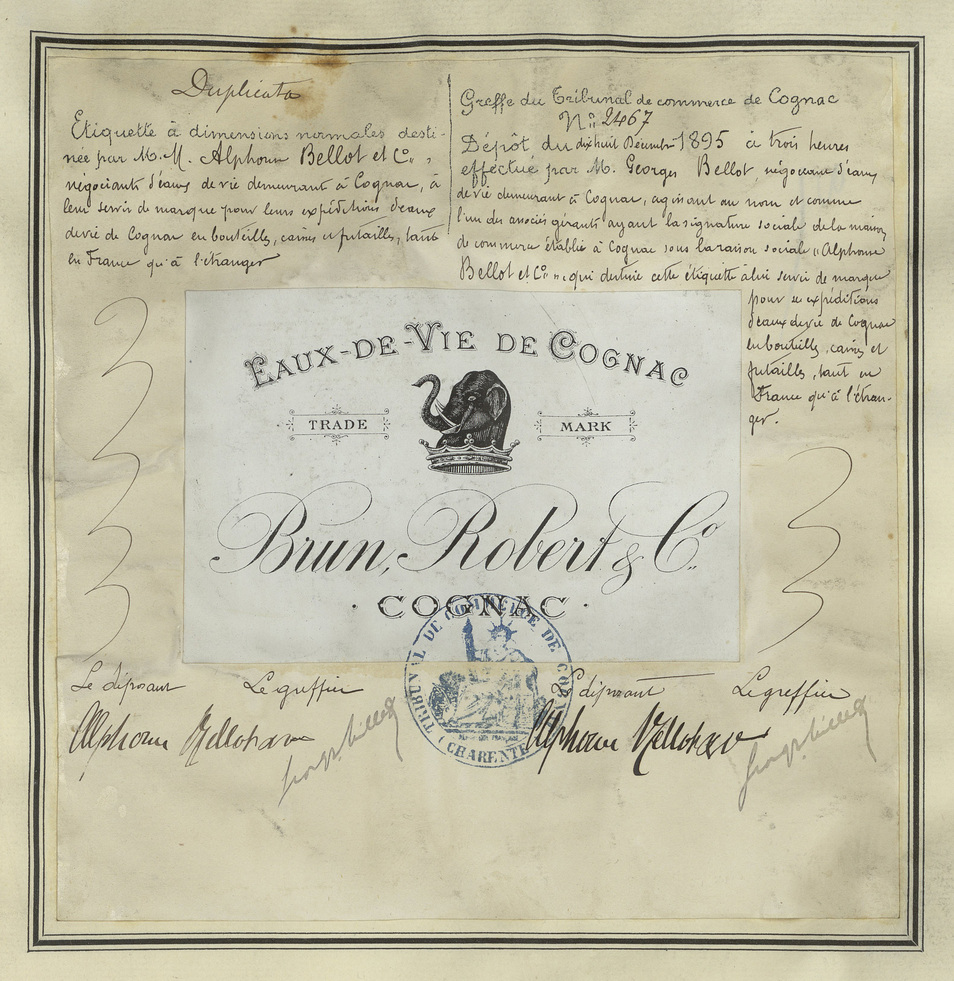 Duplicata
Etiquette à dimensions normales desti-
née par M.M. Alphonse Bellot et Co.,
négociants d'eaux de vie demeurant à Cognac, à
leur servir de marque pour leurs expéditions d'eaux
de vie de Cognac en bouteilles, caisses et futailles, tant
en France qu'à l'étranger
Greffe du Tribunal de commerce de Cognac
No 2467
Dépôt du dix huit Décembre 1895 à trois heures
effectué par M. Georges Bellot, négociant d'eaux
de vie demeurant à Cognac, agissant au nom et comme
l'un des associés gérants ayant la signature sociale de la maison
de commerce établie à Cognac sous la raison sociale "Alphonse
Bellot et Co", qui destine cette étiquette à lui servir de marque
pour ses expéditions
d'eaux de vie de Cognac
en bouteilles, caisses et
futailles, tant en
France qu'à l'étran-
ger.
EAUX-DE-VIE DE COGNAC
TRADE MARK
Brun, Robert & Co.
· COGNAC ·
TRIBUNAL DE COMMERCE DE COGNAC
(CHARENTE)
Le déposant Le greffier
Le déposant Le greffier
Alphonse Bellot
Alphonse Bellot